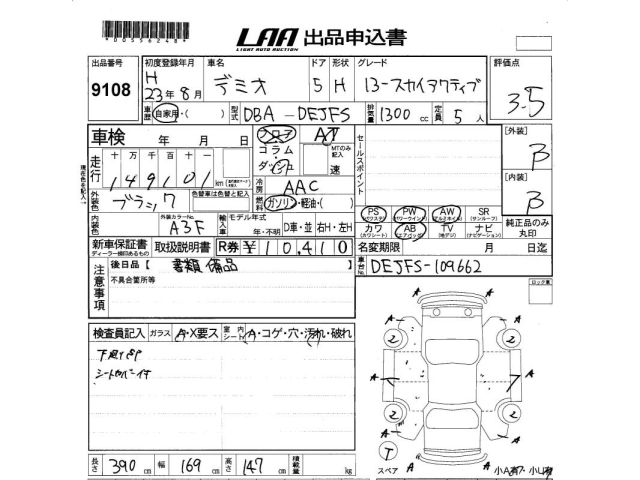 *0055624B*
LAA 出品申込書
LIGHT AUTO AUCTION
出品番号 初度登録年月 車名 ドア 形状 グレード 評価点
9108 H 23年8月 デミオ 5 H 13-スカイアクティブ 3.5
車歴 自家用・( ) 型式 DBA-DEJFS 排気量 1300 cc 定員 5人
車検 年 月 日
フロア AT
コラム
ダッシュ
MTのみ記入 速
セールスポイント
[外装] B
[内装] B
走行 十万千百十一
149101 km
冷房 AAC
外装色 ブラック 色替車は色替と記入
燃料 ガソリン・軽油・( )
内装色 外装カラーNo. A3F 輸入車 モデル年式 年・不明 D車・並 右H・左H
PS (パワステ) PW (パワーウインド) AW (アルミホイル) SR (サンルーフ)
カワ (カワシート) AB (エアバック) TV (地デジ) ナビ (ナビゲーション)
純正品のみ丸印
新車保証書 取扱説明書 R券 ¥10,410
ディーラー捺印あるもの
名変期限 月 日迄
注意事項 後日品【 書類 備品 】
不具合箇所等
車台No. DEJFS-109662
検査員記入 ガラス A・X要ス 室内シート A・コゲ・穴・汚れ・破れ
シートカバー付
A A A A A A A A
2 2 2 2
T
スペア
長さ 390 cm 幅 169 cm 高さ 147 cm 積載量 kg